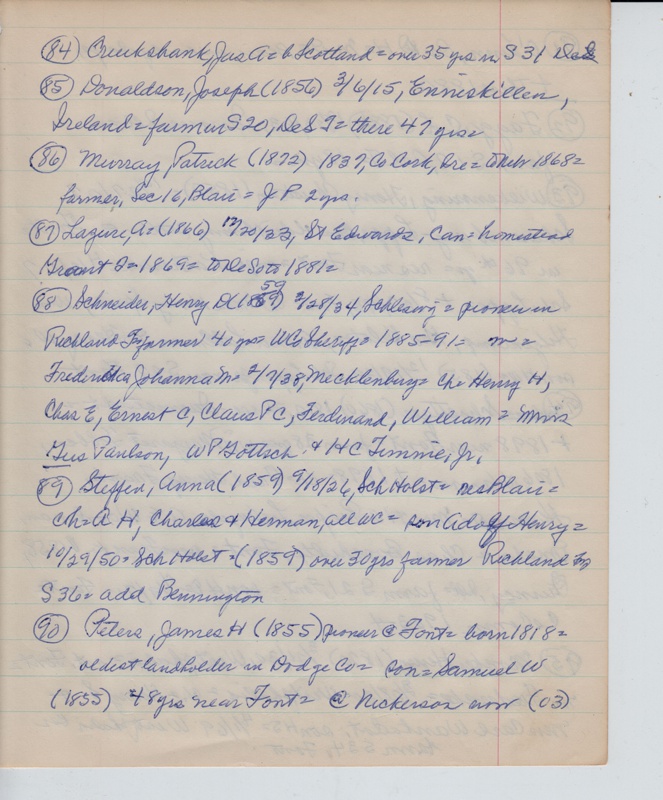 (84) Cruickshank, Jas A = b Scotland = over 35 yrs in S 31 DeS
(85) Donaldson, Joseph (1856) 3/6/15, Enniskillen,
Ireland = farmer S 20, DeS T = there 47 yrs =
(86) Murray Patrick (1872) 1837, Co Cork, Ire = to Neb 1868 =
farmer, Sec 16, Blair = J P 2 yrs.
(87) Lazure, A = (1866) 12/20/23, St Edwards, Can = homestead
Grant = 1869 = to DeSoto 1881 =
(88) Schneider, Henry D (1859) 2/28/34, Schleswig = pioneer in
Richland Tp farmer 40 yrs = W Co Sheriff = 1885-91 = m =
Fredericka Johanna M = 2/7/38, Mecklenburg = ch = Henry H,
Chas E, Ernest C, Claus P C, Ferdinand, William = Mmes
Gus Paulson, W P Gottsch & H C Timme, Jr,
(89) Steffen, Anna (1859) 9/18/26, Sch Holst = res Blair =
ch = A H, Charles & Herman, all WC = son Adolf Henry =
10/29/50 = Sch Holst = (1859) over 30 yrs farmer Richland Tp
S 36 = add Bennington
(90) Peters, James H (1855) pioneer @ Font = born 1818 =
oldest landholder in Dodge Co = son = Samuel W
(1855) 48 yrs near Font = @ Nickerson now (03)